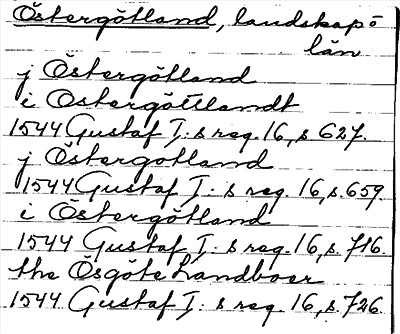 Östergötland, landskap o
län
j Östergötland
i Ostergöttlandt
1544 Gustaf I: s reg. 16, s 627.
j Östergotland
1544 Gustaf I: s reg. 16, s. 659.
i Östergötland
1544 Gustaf I: s reg. 16, s. 716.
the Ösgöte Landboer
1544 Gustaf I: s reg. 16, s. 726.